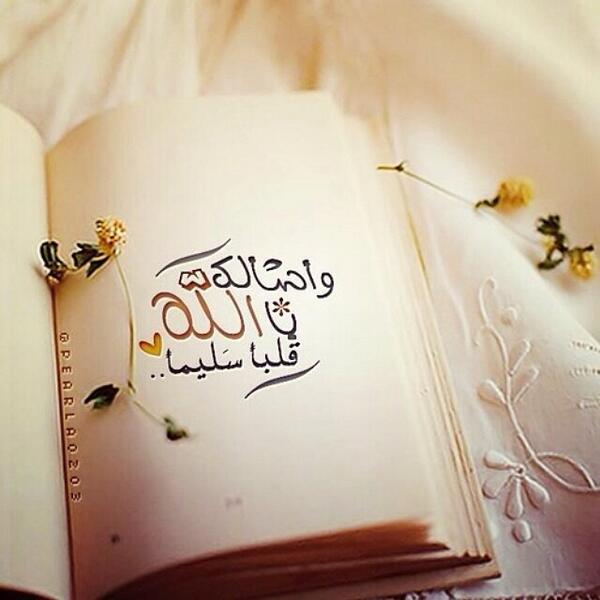 وأسألك
يا الله
قلبا سَليما..
@PEARLA0203